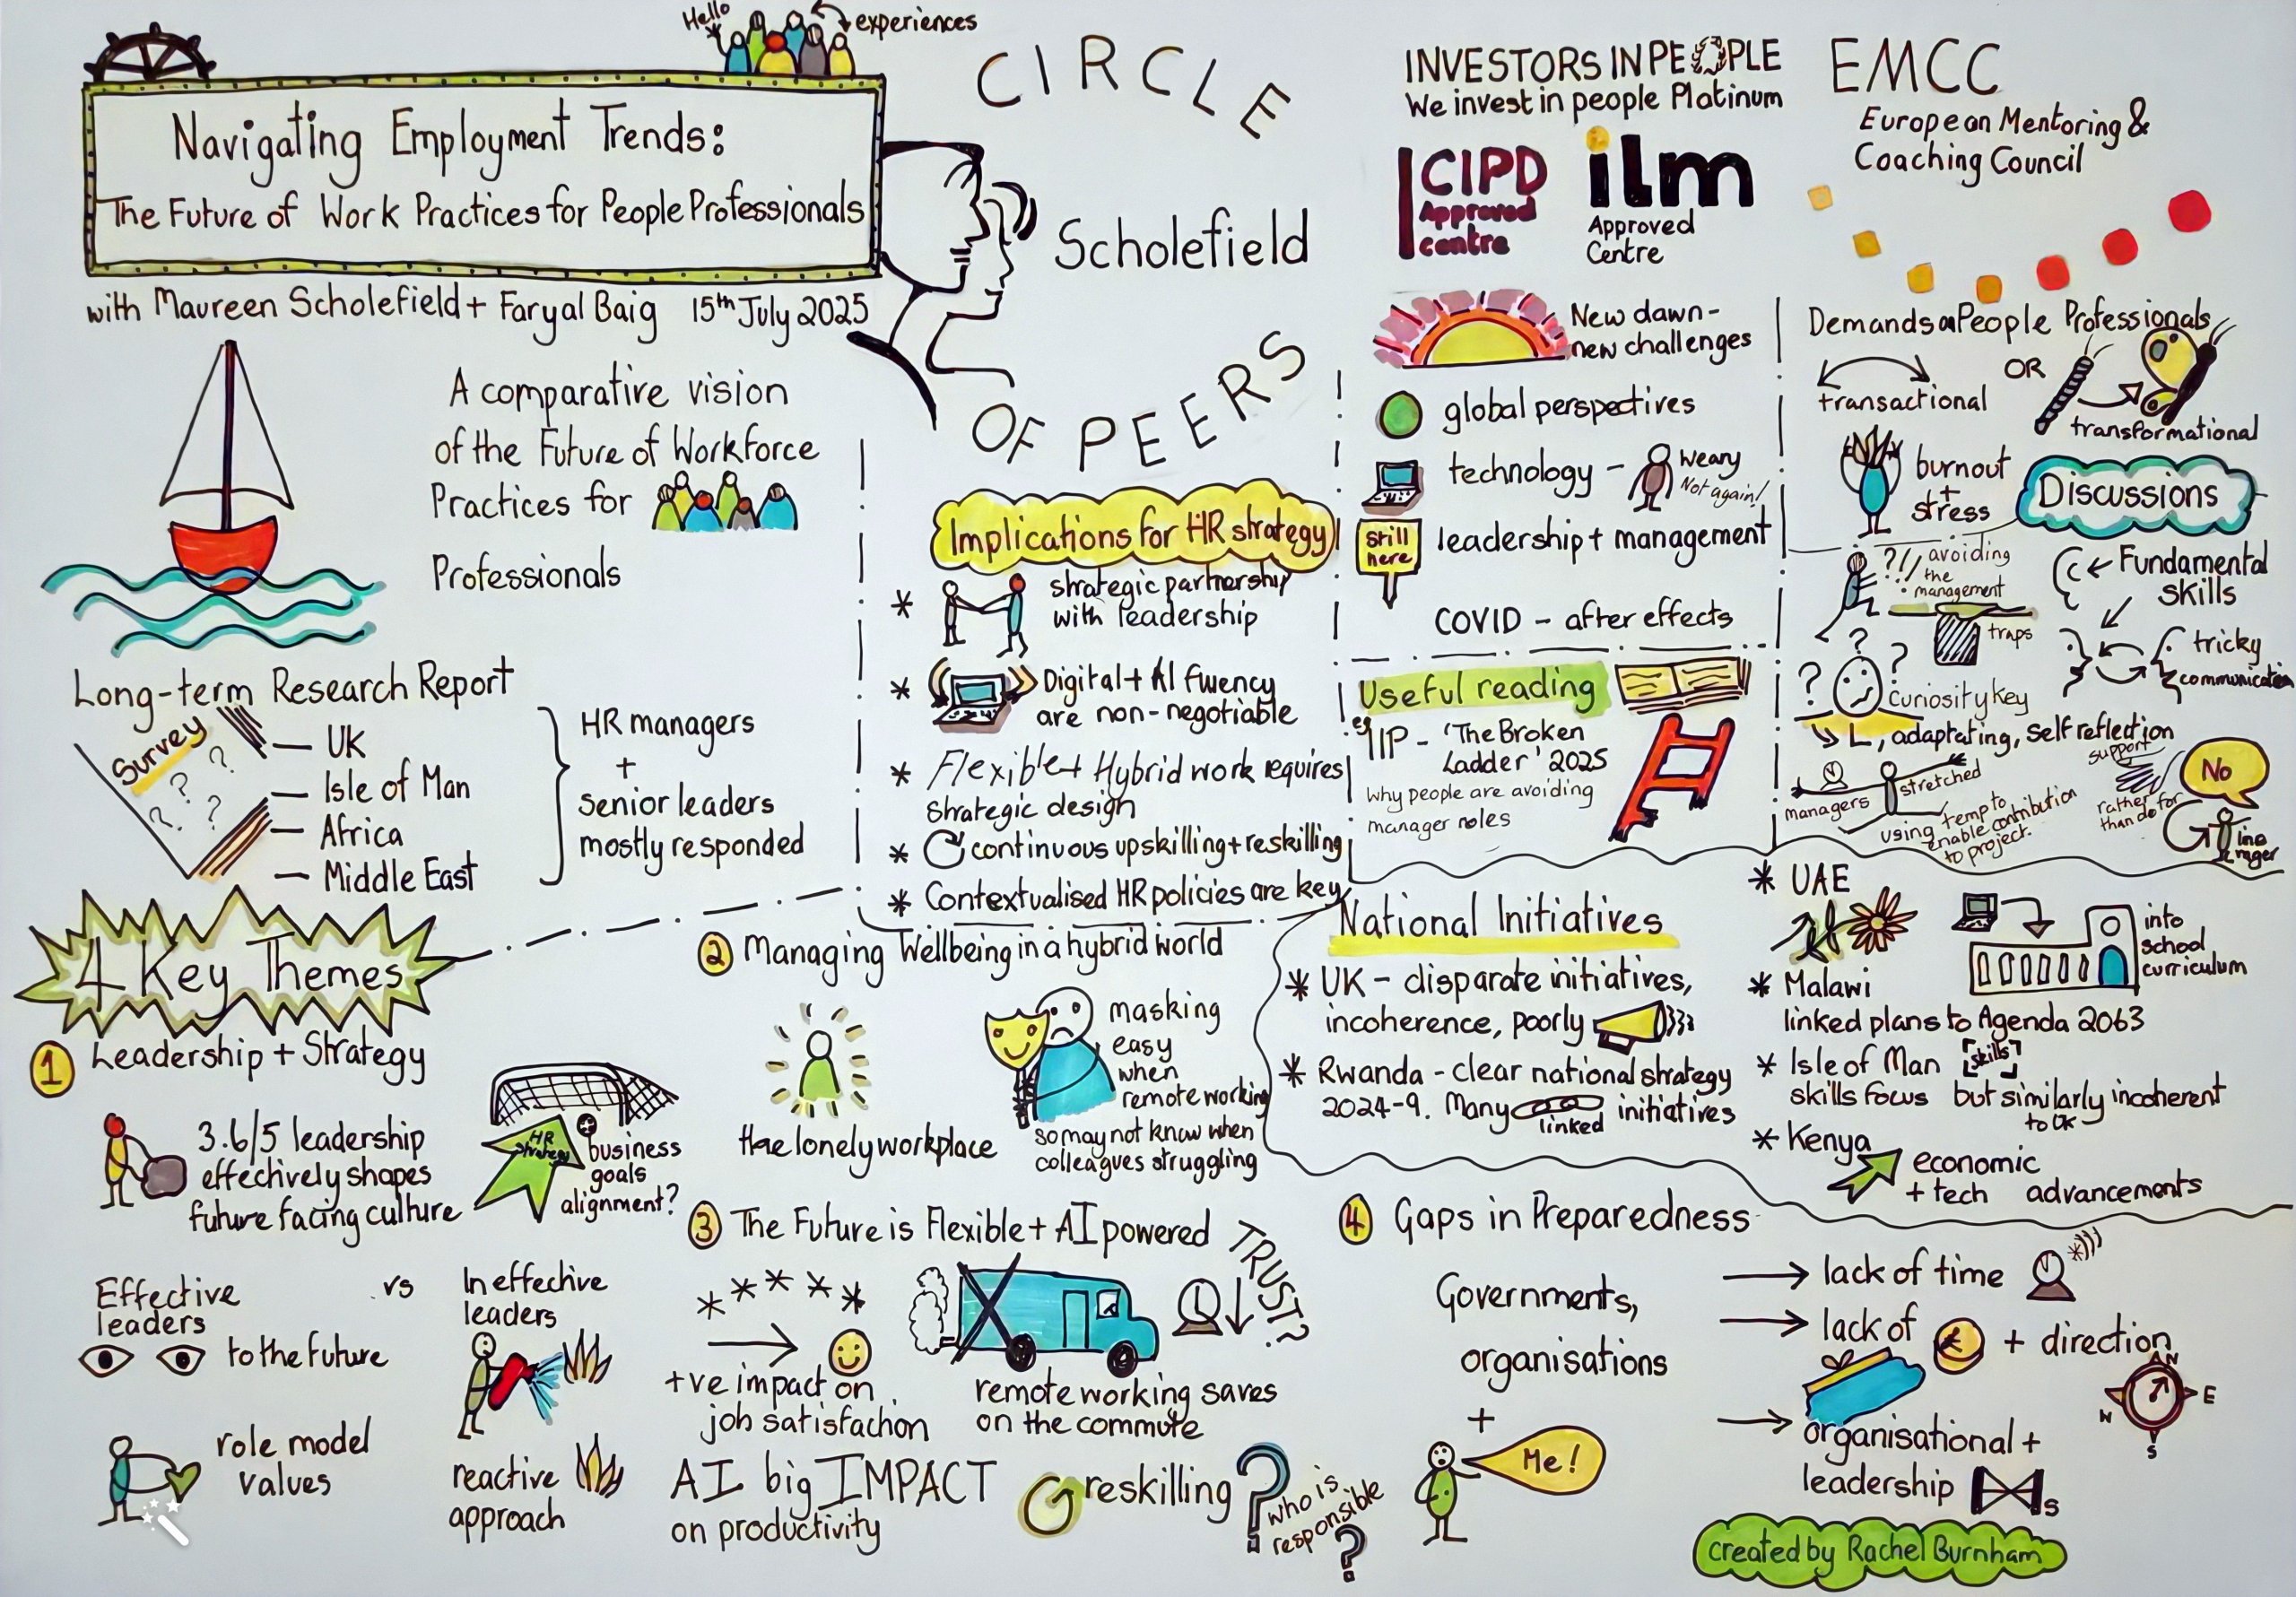 Hello
experiences
Navigating Employment Trends:
The Future of Work Practices for People Professionals
with Maureen Scholefield + Faryal Baig 15th July 2025
CIRCLE
Scholefield
OF PEERS
INVESTORS IN PEOPLE
We invest in people Platinum
CIPD
Approved
centre
ilm
Approved
Centre
EMCC
European Mentoring &
Coaching Council
A comparative vision
of the Future of Workforce
Practices for
Professionals
Long-term Research Report
Survey
? ? ? ?
— UK
— Isle of Man
— Africa
— Middle East
HR managers
+
senior leaders
mostly responded
Implications for HR strategy
* strategic partnership
with leadership
* Digital + AI fluency
are non-negotiable
* Flexible + Hybrid work requires
strategic design
* continuous upskilling + reskilling
* Contextualised HR policies are key
New dawn -
new challenges
global perspectives
technology - weary
Not again!
still
here
leadership + management
COVID - after effects
Useful reading
eg IIP - 'The Broken
Ladder' 2025
why people are avoiding
manager roles
Demands on People Professionals
transactional
OR
transformational
burnout
+
stress
Discussions
?!! avoiding
the
management
traps
Fundamental
skills
tricky
communication
? ? ?
curiosity key
L, adaptating, self reflection
managers
stretched
using temp to
enable contribution
to project.
support
rather
than do for
No
line
4 Key Themes
1 Leadership + Strategy
3.6/5 leadership
effectively shapes
future facing culture
HR
Strategy
business
goals
alignment?
Effective
leaders
to the future
vs
Ineffective
leaders
role model
values
reactive
approach
2 Managing Wellbeing in a hybrid world
the lonely workplace
masking
easy
when
remote working
so may not know when
colleagues struggling
3 The Future is Flexible + AI powered
* * * * *
+ve impact on
job satisfaction
remote working saves
on the commute
TRUST?
AI big IMPACT
on productivity
reskilling ?
who is
responsible
?
National Initiatives
* UK - disparate initiatives,
incoherence, poorly
* Rwanda - clear national strategy
2024-9. Many initiatives
linked
* UAE
into
school
curriculum
* Malawi
linked plans to Agenda 2063
* Isle of Man skills
skills focus but similarly incoherent
to UK
* Kenya
economic
+ tech advancements
4 Gaps in Preparedness
Governments,
organisations
+
Me!
lack of time
lack of + direction
N
E
S
W
organisational +
leadership
s
created by Rachel Burnham